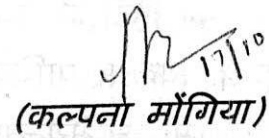 17/10
(कल्पना मोंगिया)